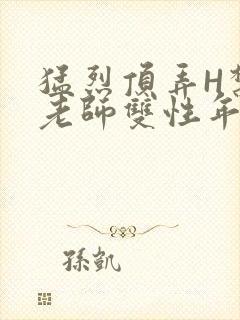 猛烈頂弄H
老師雙性年
孫凱